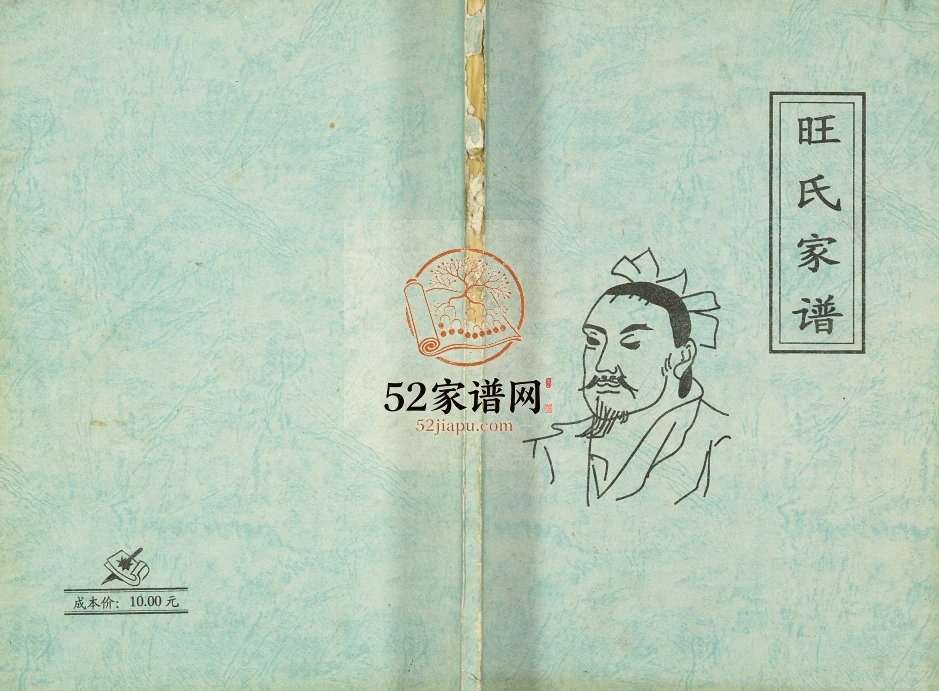 旺氏家谱
52家谱网
52jiapu.com
成本价：10.00元